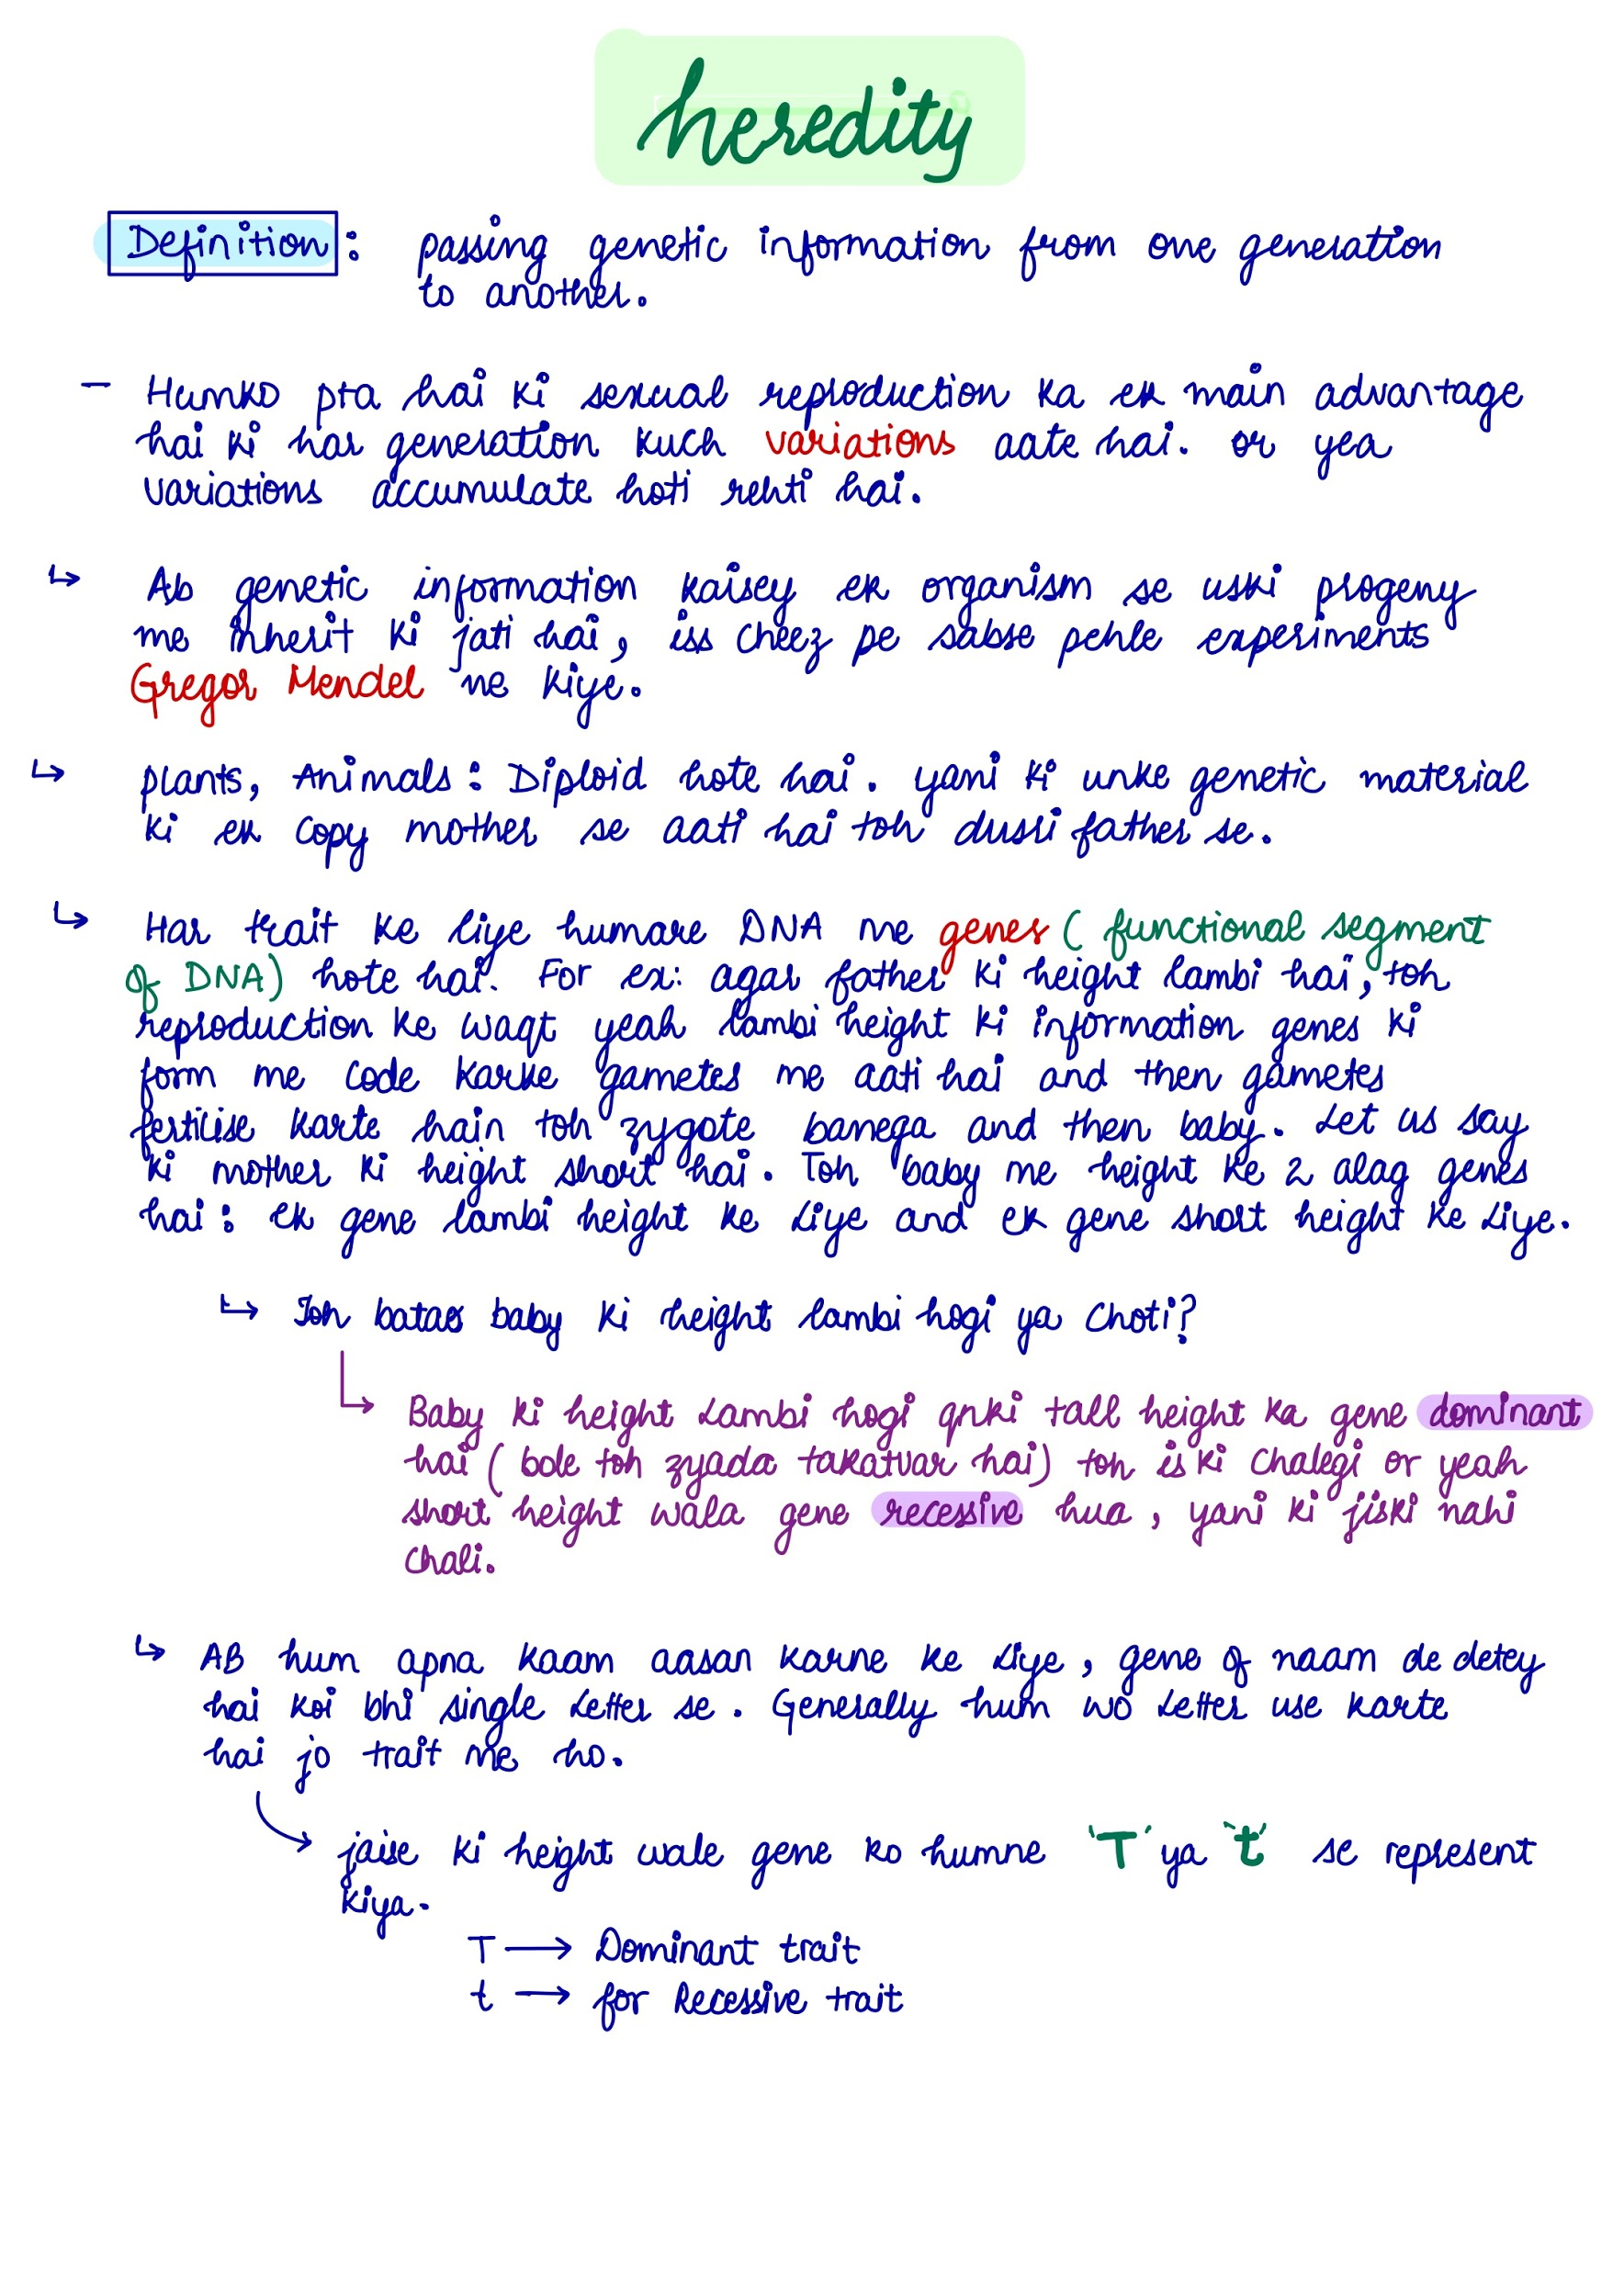 heredity
Definition : passing genetic information from one generation
to another.
- Humko pta hai ki sexual reproduction ka ek main advantage
hai ki har generation kuch variations aate hai. or yea
variations accumulate hoti rehti hai.
↳ Ab genetic information kaisey ek organism se uski progeny
me inherit ki jati hai, iss cheez pe sabse pehle experiments
Gregor Mendel ne kiye.
↳ plants, Animals : Diploid hote hai. yani ki unke genetic material
ki ek copy mother se aati hai toh dusri father se.
↳ Har trait ke liye humare DNA me genes ( functional segment
of DNA) hote hai. For ex: agar father ki height lambi hai, toh
reproduction ke waqt yeah lambi height ki information genes ki
form me code karke gametes me aati hai and then gametes
fertilise karte hain toh zygote banega and then baby. Let us say
ki mother ki height short hai. Toh baby me height ke 2 alag genes
hai : ek gene lambi height ke liye and ek gene short height ke liye.
↳ Toh batao baby ki height lambi hogi ya choti?
↳ Baby ki height lambi hogi qnki tall height ka gene dominant
hai ( bole toh zyada takatvar hai) toh is ki chalegi or yeah
short height wala gene recessive hua , yani ki jiski nahi
chali.
↳ AB hum apna kaam aasan karne ke liye, gene of naam de detey
hai koi bhi single letter se. Generally hum wo letter use karte
hai jo trait me ho.
jaise ki height wale gene ko humne 'T' ya 't' se represent
kiya.
T → Dominant trait
t → for Recessive trait